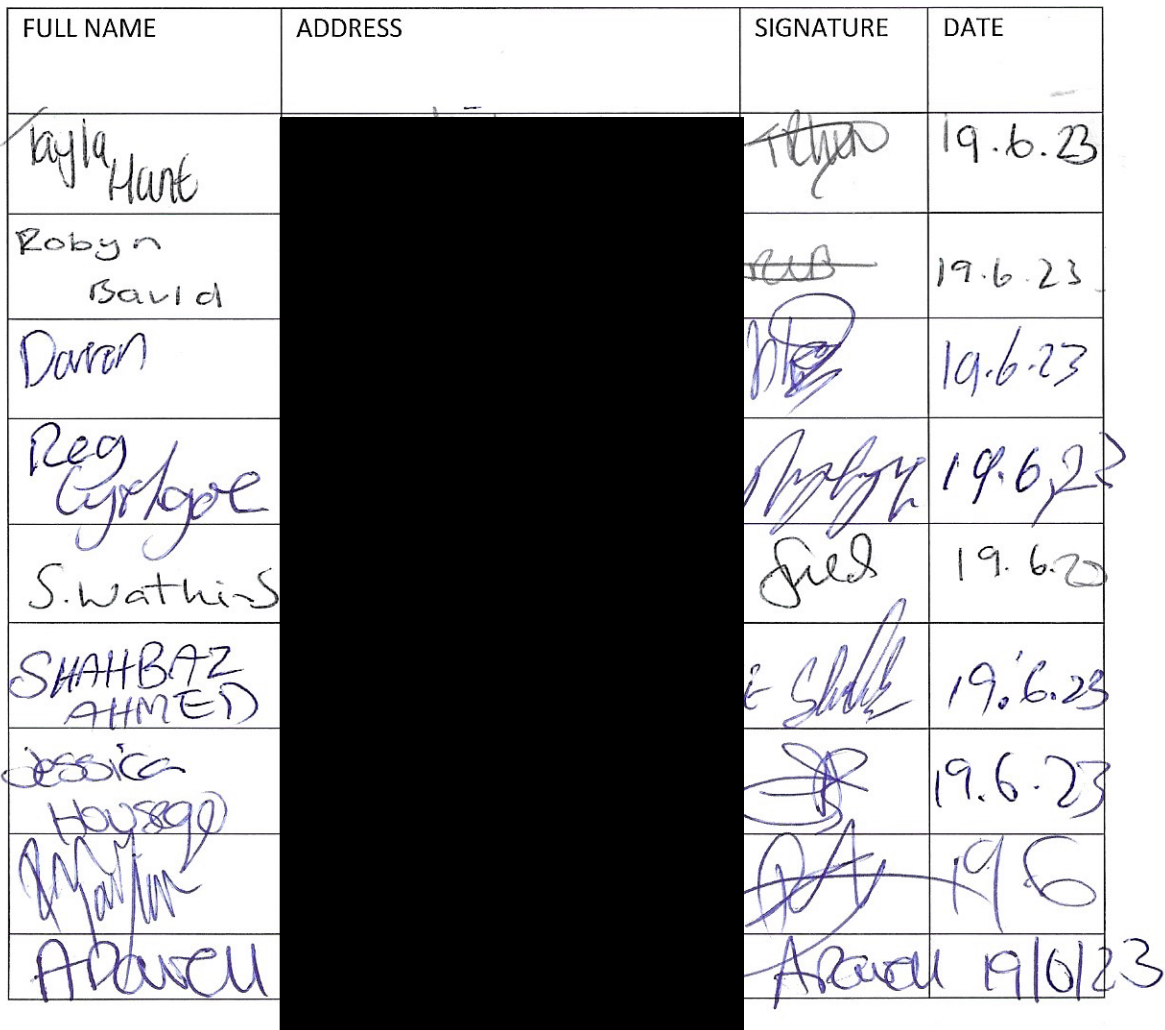 FULL NAME ADDRESS SIGNATURE DATE
Tayla
Hant 19.6.23
Robyn
David 19.6.23
Darren 19.6.23
Reg 19.6.23
S. Watkins 19.6.23
SHAHBAZ
AHMED 19.6.23
Jessica
Housego 19.6.23
19 6
A Powell A Powell 19/6/23